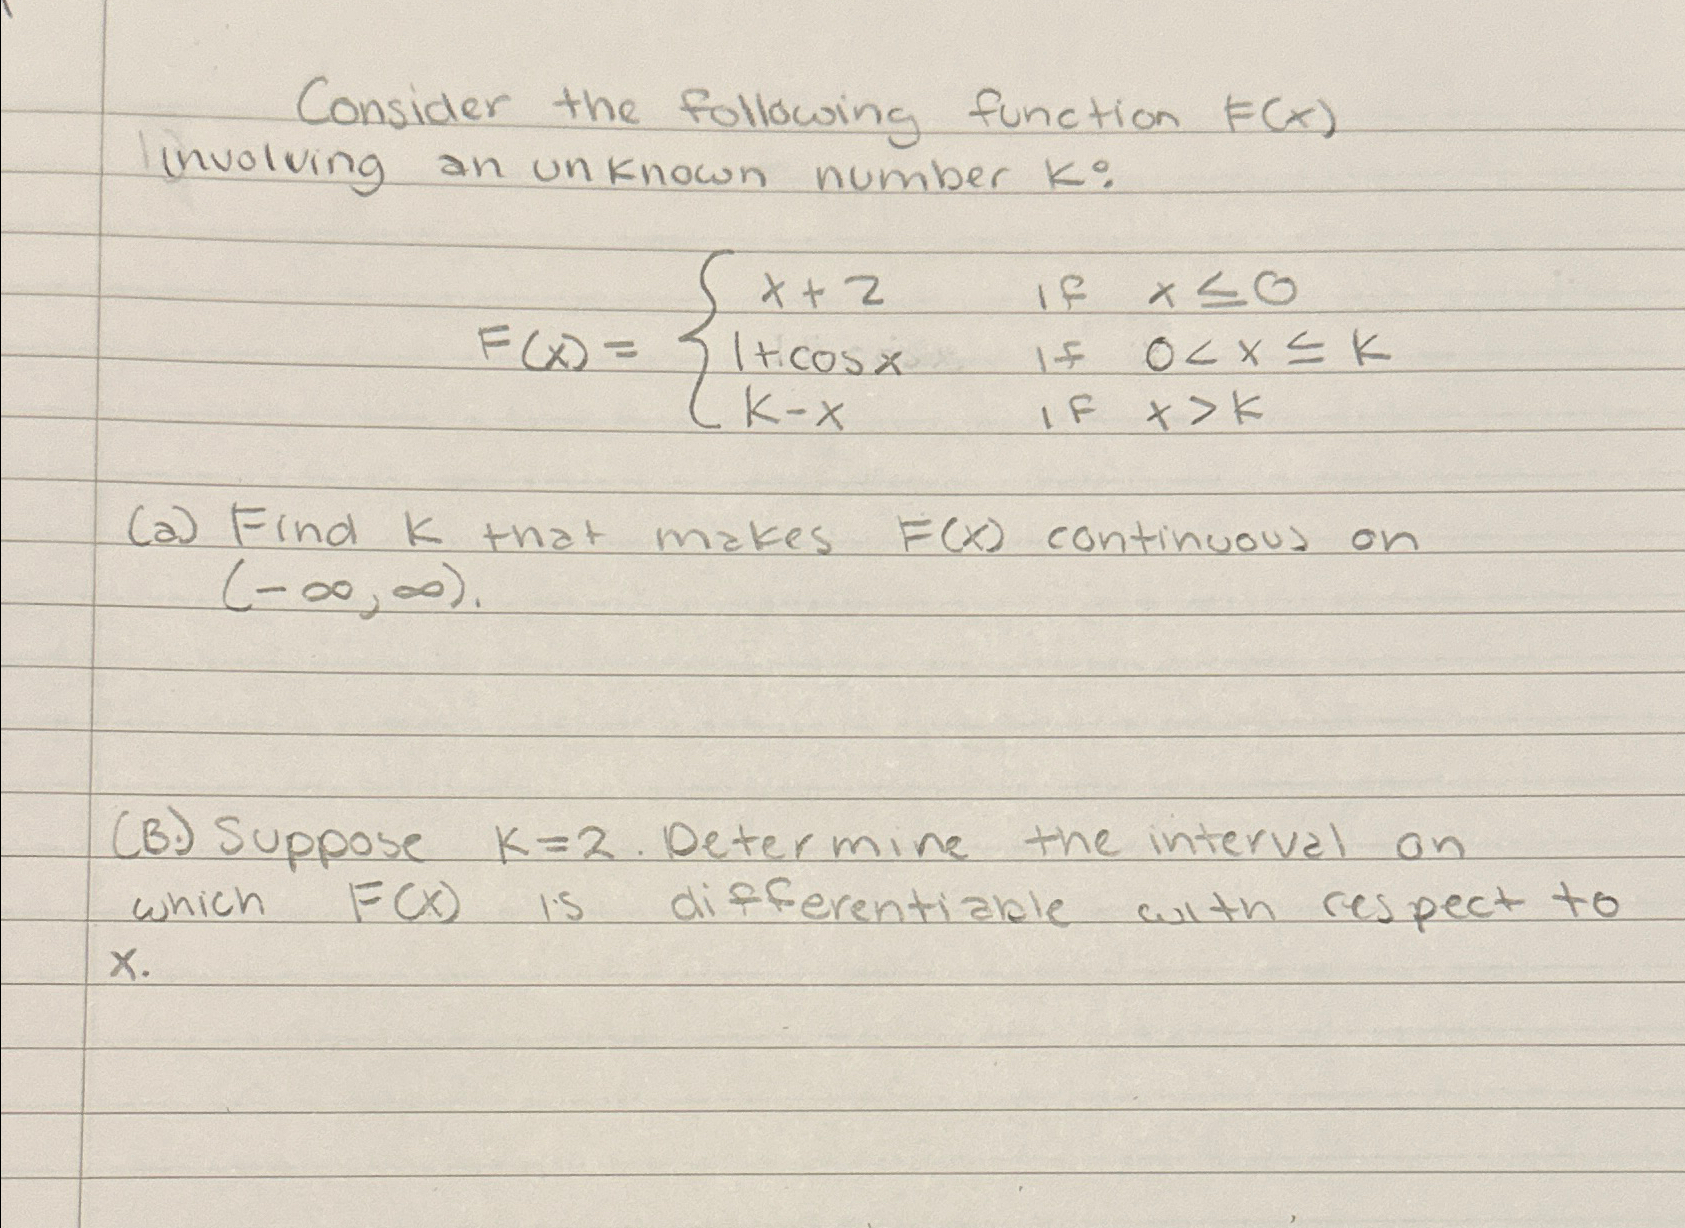 Consider the following function F(x)
involving an unknown number K:
F(x) = { x + 2 if x ≤ 0
1 + cos x if 0 < x ≤ K
K - x if x > K
(a) Find K that makes F(x) continuous on
(-∞, ∞).
(B.) Suppose K = 2. Determine the interval on
which F(x) is differentiable with respect to
x.